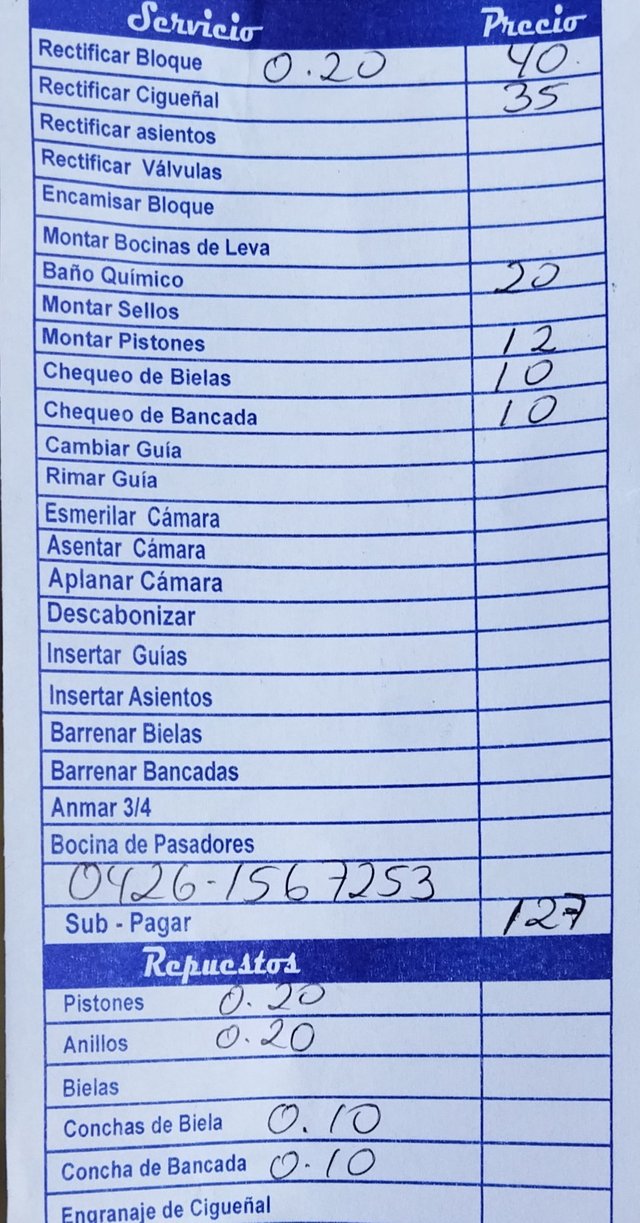 Servicio Precio
Rectificar Bloque 0.20 40.
Rectificar Cigueñal 35
Rectificar asientos
Rectificar Válvulas
Encamisar Bloque
Montar Bocinas de Leva
Baño Químico 20
Montar Sellos
Montar Pistones 12
Chequeo de Bielas 10
Chequeo de Bancada 10
Cambiar Guía
Rimar Guía
Esmerilar Cámara
Asentar Cámara
Aplanar Cámara
Descabonizar
Insertar Guías
Insertar Asientos
Barrenar Bielas
Barrenar Bancadas
Anmar 3/4
Bocina de Pasadores
0426-1567253
Sub - Pagar 127
Repuestos
Pistones 0.20
Anillos 0.20
Bielas
Conchas de Biela 0.10
Concha de Bancada 0.10
Engranaje de Cigueñal